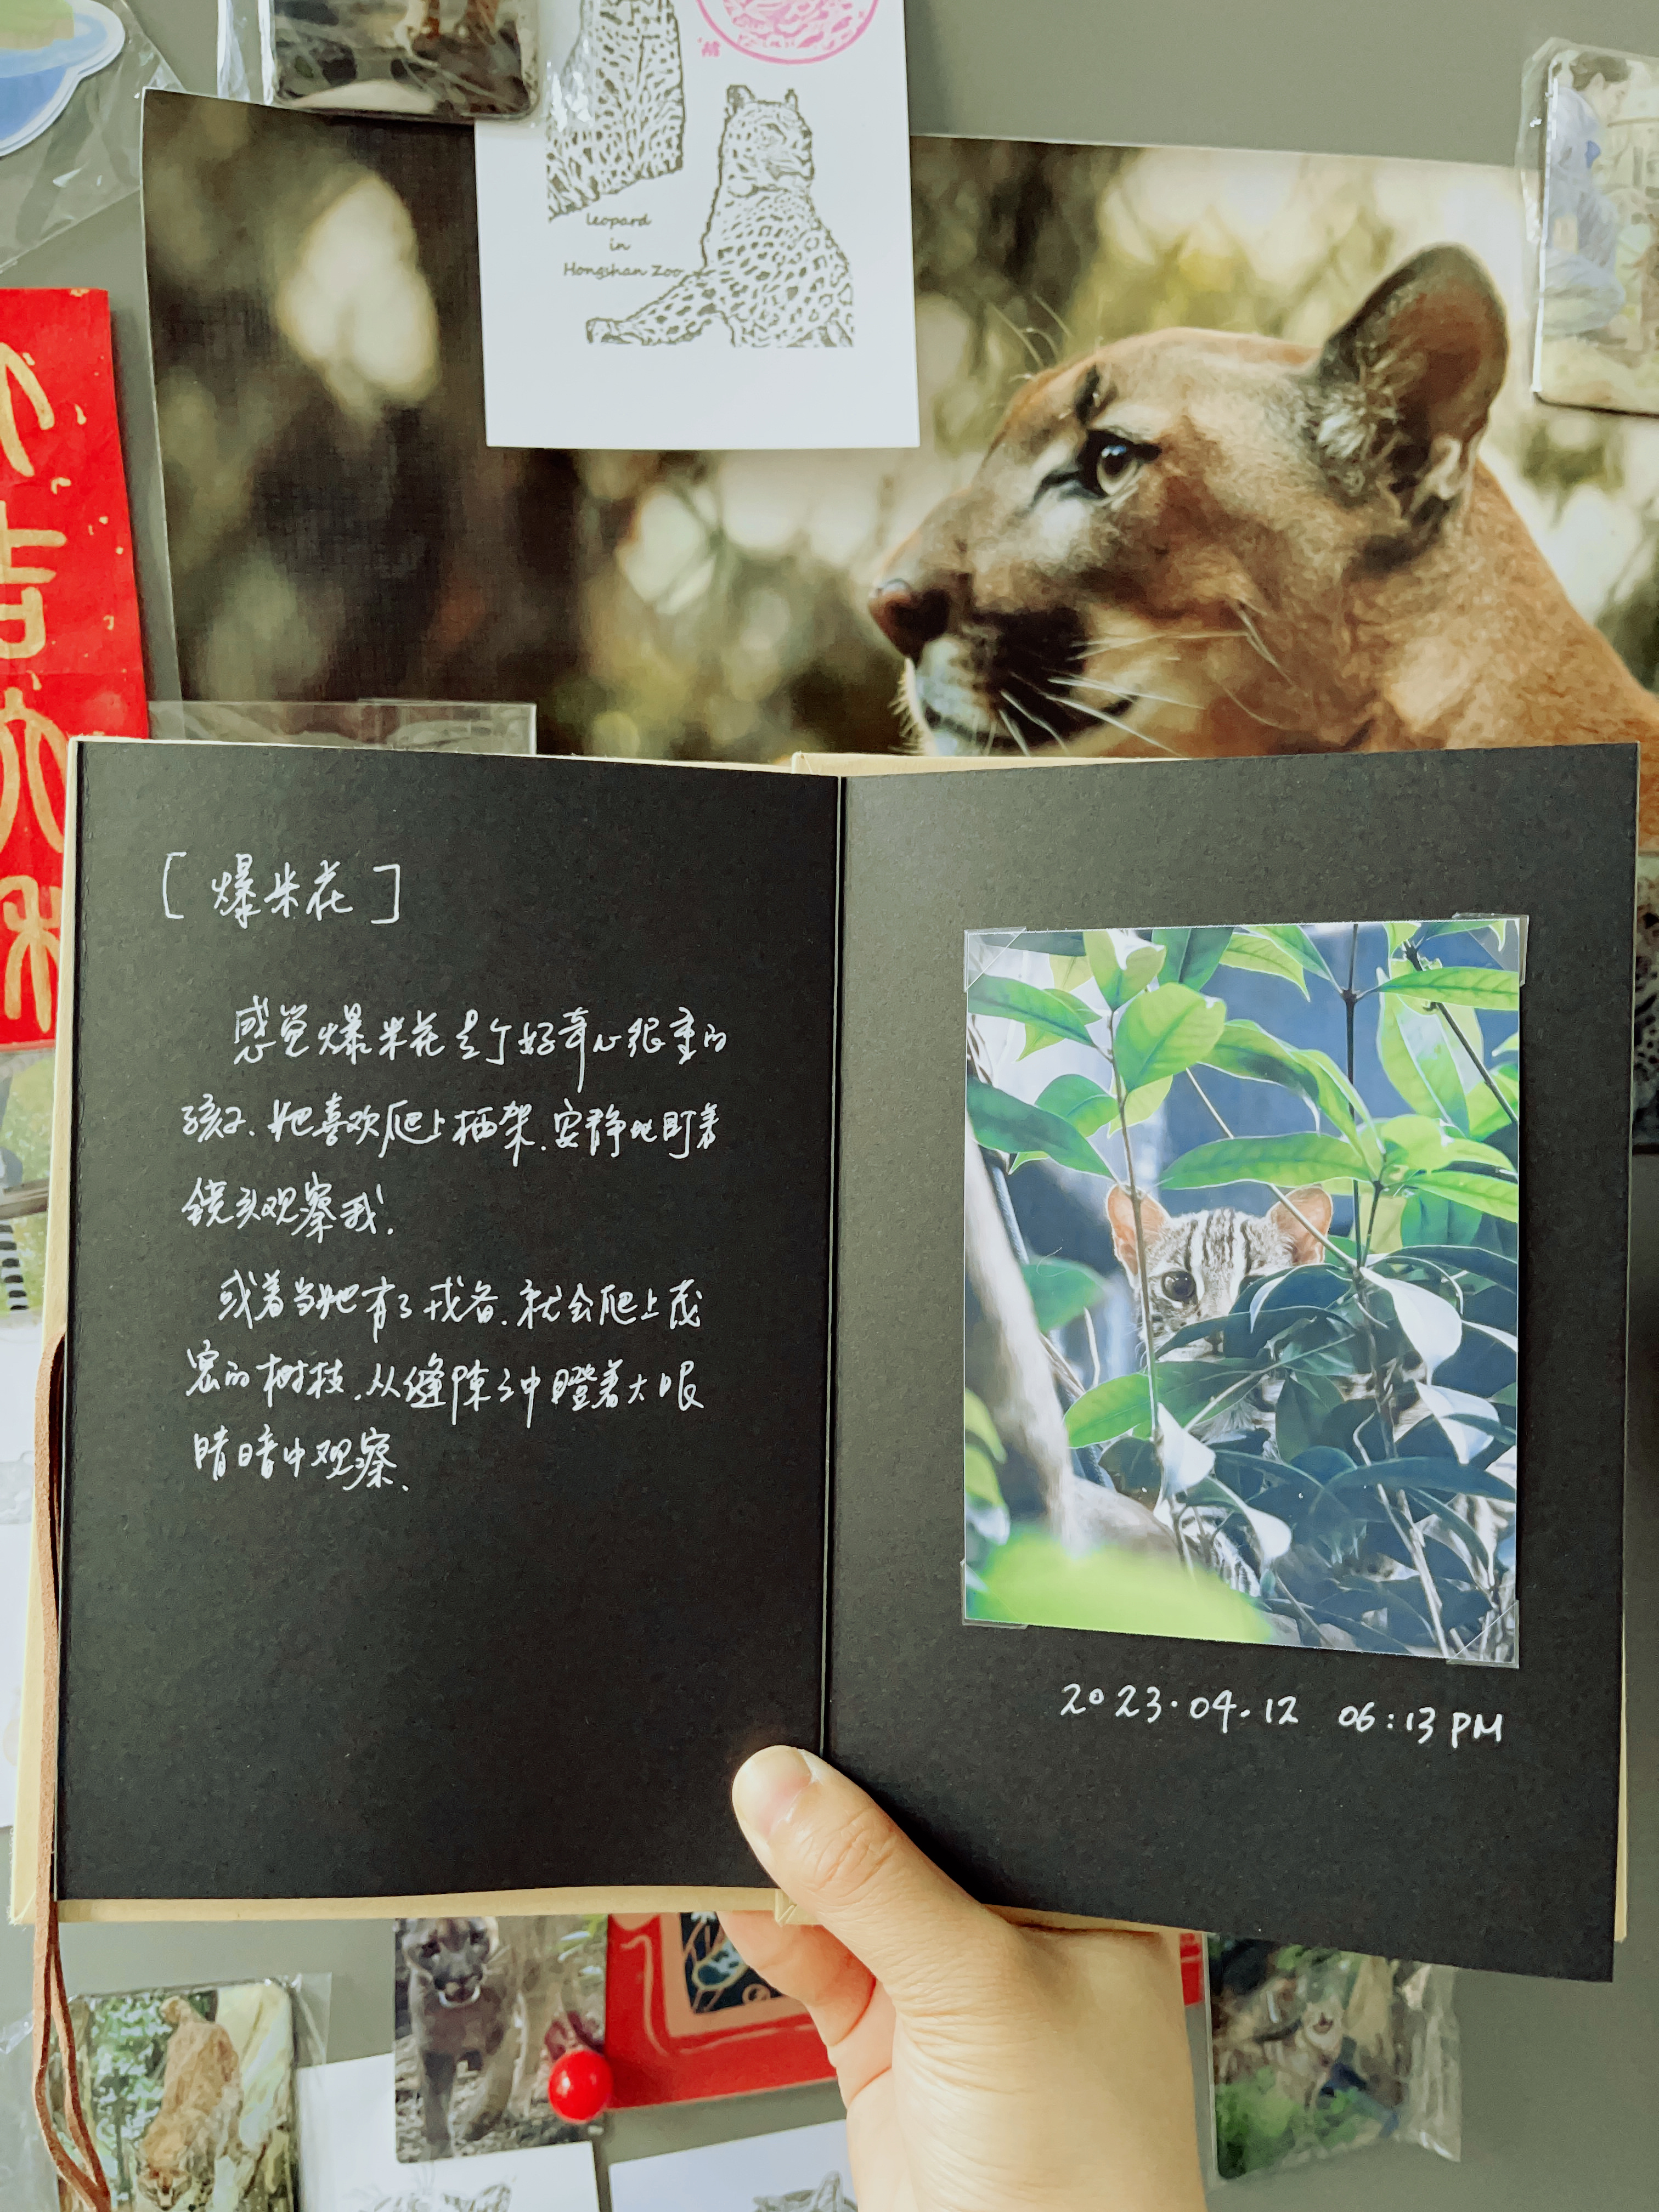 leopard
in
Hongshan Zoo
吉
[爆米花]
感觉爆米花是个好奇心很重的
孩子、她喜欢爬上栖架、安静地盯着
镜头观察我.
或着当她有了戒备、就会爬上茂
密的树枝、从缝隙中瞪着大眼
睛暗中观察、
2023.04.12 06:13PM